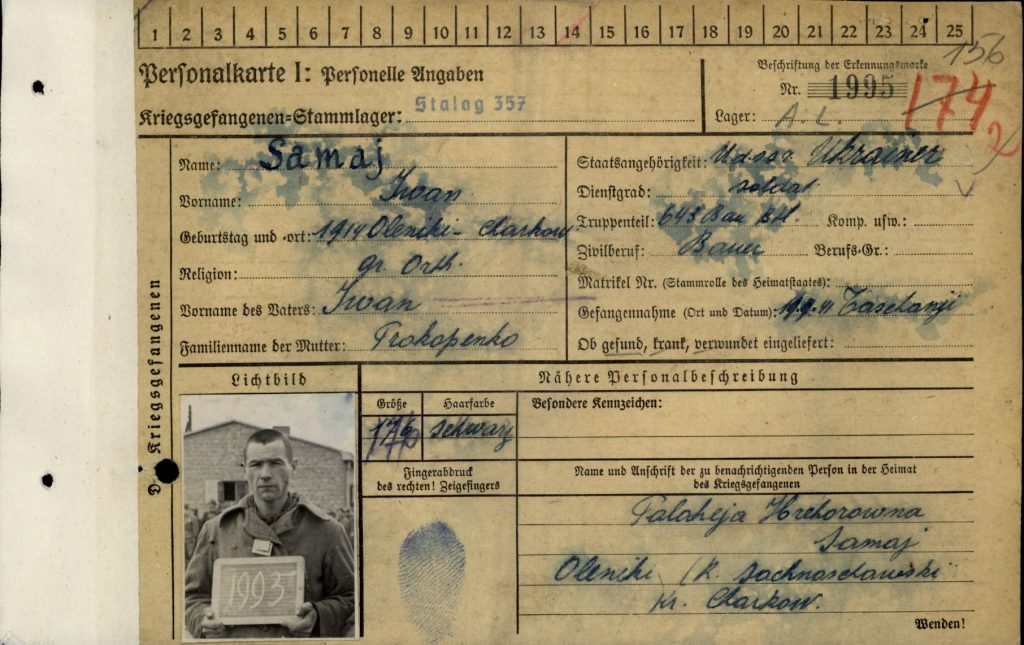 1 2 3 4 5 6 7 8 9 10 11 12 13 14 15 16 17 18 19 20 21 22 23 24 25
156
Personalkarte I: Personelle Angaben
Kriegsgefangenen=Stammlager: Stalag 357
Beschriftung der Erkennungsmarke
Nr. 1995
174
Lager: A. L.
Des Kriegsgefangenen
Name: Samaj
Vorname: Iwan
Geburtstag und -ort: 1914 Oleniki - Charkow
Religion: gr. Orth.
Vorname des Vaters: Iwan
Familienname der Mutter: Prokopenko
Staatsangehörigkeit: U.d.SSR. Ukrainer
Dienstgrad: Soldat
Truppenteil: 643 Bau Btl. Komp. usw.:
Zivilberuf: Bauer Berufs-Gr.:
Matrikel Nr. (Stammrolle des Heimatstaates):
Gefangennahme (Ort und Datum):
Ob gesund, krank, verwundet eingeliefert:
Lichtbild
1995
Nähere Personalbeschreibung
Größe Haarfarbe
176 schwarz
Fingerabdruck
des rechten! Zeigefingers
Besondere Kennzeichen:
Name und Anschrift der zu benachrichtigenden Person in der Heimat
des Kriegsgefangenen
Palaheja Hrehorowna
Samaj
Oleniki
Kr. Charkow.
Wenden!